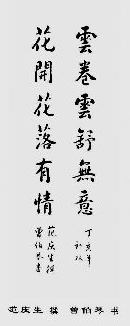 雲卷雲舒無意
花開花落有情
丁亥年
範庆生撰
曾伯琴书
范庆生 撰 曾伯琴 书